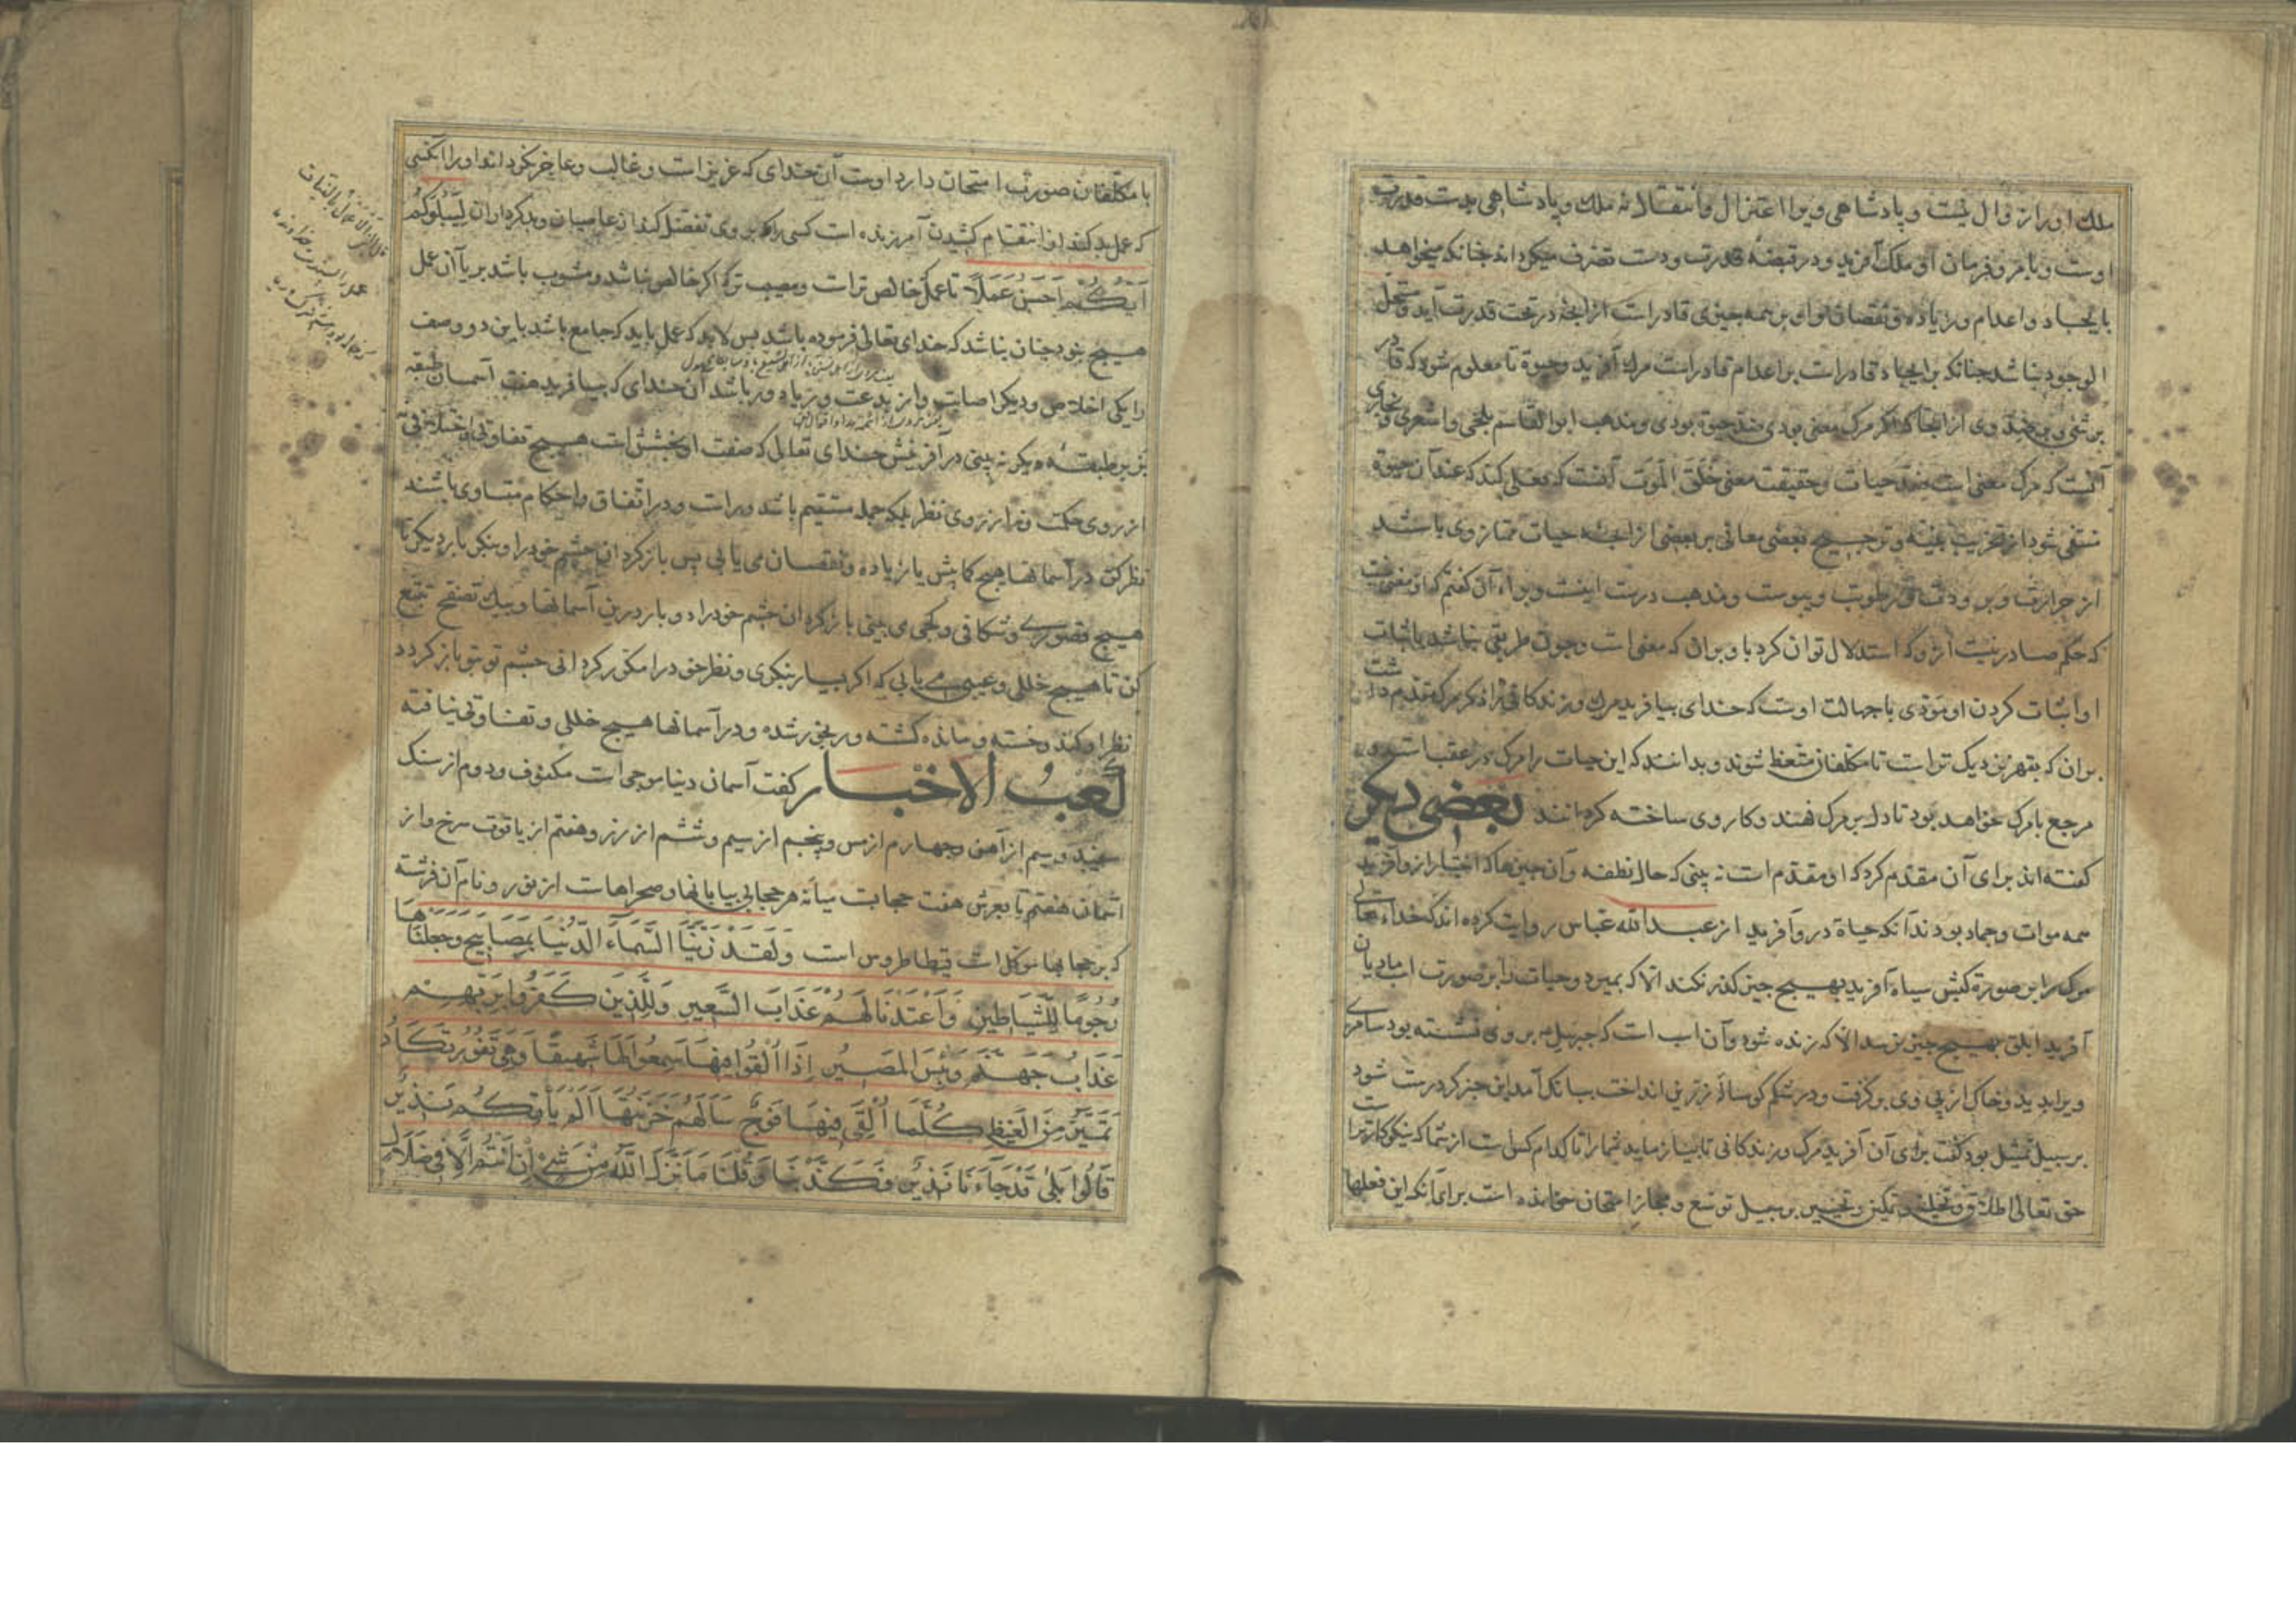 ملك او را زوال نیست و پادشاهی ویرا اعتزال و انتقال نه ملك و پادشاهی بدست قدرت
اوست و بامر و فرمان او ملك آفرید و در قبضهٔ قدرت و دست تصرف میكرداند جنانكه میخواهد
بایجاد و اعدام و زیاده و نقصان و او بر همه جیزی قادر است از انجه در تحت قدرت آید و مستحیل
الوجود نباشد جنانكه بر ایجاد قادر است بر اعدام قادر است مرك آفرید و حیوة تا معلوم شود كه قادر
بر شئ و بر ضد وی از انجا كه اكر مرك معنی بودی ضد حیوة بودی و مذهب ابو القاسم بلخی و اشعری و نجاری
آنست كه مرك معنی است ضد حیات و حقیقت معنی خَلَقَ الْمَوتَ آنست كه فعلی كند كه عند آن حیوة
منتفی شود از تخریب بنیه و ترجیح بعضی معانی بر بعضی از انجه حیات ممتاز وی باشد
از حرارت و برودت و رطوبت و یبوست و مذهب درست اینست و برای آن كفتم كه از معنی
كه حكم صادر نیست ازو كه استدلال توان كرد باو بران كه معنی است و جون طریقی نباشد باثبات
او اثبات كردن او مؤدی با جهالت اوست كه خدای بیافرید مرك و زندكانی را ذكر مرك مقدم داشت
بران كه بقهر نزدیك تر است تا مكلفان متعظ شوند و بدانند كه این حیات را مرك در عقب است و
مرجع با مرك خواهد بود تا دل بر مرك نهند و كار وی ساخته كردانند بعضی دیكر
كفته اند برای آن مقدم كرد كه او مقدم است نه بینی كه حال نطفه و آن جیزها كه اختیار ازو آفرید
همه موات و جماد بودند آنكه حیاة درو آفرید از عبد الله عباس روایت كرده اند كه خدای تعالی
مرك را بر صورة كبش سیاه آفرید بهیج جیز كذر نكند الا كه بمیرد و حیات را بر صورت اسب مادیان
آفرید ابلق بهیج جیز نرسد الا كه زنده شود و آن اسب است كه جبریل بر وی نشسته بود سامری
ویرا بدید و خاك از پی وی بر كرفت و در شكم كوسالهٔ زرین انداخت ببانك آمد این خبر كر درست شود
بر سبیل تمثیل بود كفت برای آن آفرید مرك و زندكانی تا بیازماید شما را تا كدام كس است از شما كه نیكو كارتر است
حق تعالی اطلاق و تخلیه و تمكین و تخییر بر سبیل توسع و مجاز امتحان خوانده است برای آنكه این فعلها
با مكلفان صورت امتحان دارد اوست آن خدای كه عزیز است و غالب و عاجز نكرداند او را آنكسی
كه عمل بد كند از انتقام كشیدن آمرزنده است كسی را كه بر وی تفضل كند از عاصیان و بدكرداران لِیَبْلُوَكُمْ
اَیُّكُمْ اَحسَنُ عَمَلاً تا عمل كه خالص تر است و مصیب تر كه اكر خالص نباشد و مشوب باشد بریا آن عمل
هیج نبود جنان نباشد كه خدای تعالی فرموده باشد پس لابد كه عمل باید كه جامع باشد باین دو وصف
را یكی اخلاص و دیكر اصابت و از بدعت و ریا دور باشد آن خدای كه بیافرید هفت آسمان طبقه
بر طبقه دیكر نه بینی در آفرینش خدای تعالی كه صفت او بخشش است هیج تفاوتی و اختلافی نی
از روی حكمت و نه از روی نظر بلكه جمله مستقیم باشد و راست و در اتفاق و احكام متساوی باشند
نظر كن در آسمانها هیج كمابیش یا زیاده و نقصان می یابی پس باز كردان جشم خود را و بنكر بار دیكر تا
هیج فطوری و شكافی و كجی می بینی باز كردان جشم خود را دو بار درین آسمانها و نیك تصفح و تتبع
كن تا هیج خللی و عیبی می یابی كه اكر بسیار بنكری و نظر خود را مكرر كردانی جشم تو بتو باز كردد
نظر او كند و خسته و مانده كشته و رنجور شده و در آسمانها هیج خللی و تفاوتی نیافته
كعب الاخبار كفت آسمان دنیا موجی است مكفوف و دوم از سنك
سپید و سیم از آهن و جهارم از مس و پنجم از سیم و ششم از زر و هفتم از یاقوت سرخ و از
آسمان هفتم تا بعرش هفت حجابست میانه هر حجابی بیابانها و صحراهاست از نور و نام آن فرشته
كه بر حجابها موكل است قیطاطروس است وَلَقَدْ زَیَّنَّا السَّمَآءَ الدُّنْیَا بِمَصَابِیحَ وَجَعَلْنَاهَا
رُجُومًا لِلشَّیَاطِینِ وَاَعْتَدْنَا لَهُمْ عَذَابَ السَّعِیرِ وَلِلَّذِینَ كَفَرُوا بِرَبِّهِمْ
عَذَابُ جَهَنَّمَ وَبِئْسَ الْمَصِیرُ اِذَا اُلْقُوا فِیهَا سَمِعُوا لَهَا شَهِیقًا وَهِیَ تَفُورُ تَكَادُ
تَمَیَّزُ مِنَ الْغَیْظِ كُلَّمَا اُلْقِیَ فِیهَا فَوْجٌ سَاَلَهُمْ خَزَنَتُهَا اَلَمْ یَاْتِكُمْ نَذِیرٌ
قَالُوا بَلٰی قَدْ جَآءَنَا نَذِیرٌ فَكَذَّبْنَا وَقُلْنَا مَا نَزَّلَ اللّٰهُ مِنْ شَیْءٍ اِنْ اَنْتُمْ اِلَّا فِی ضَلَالٍ